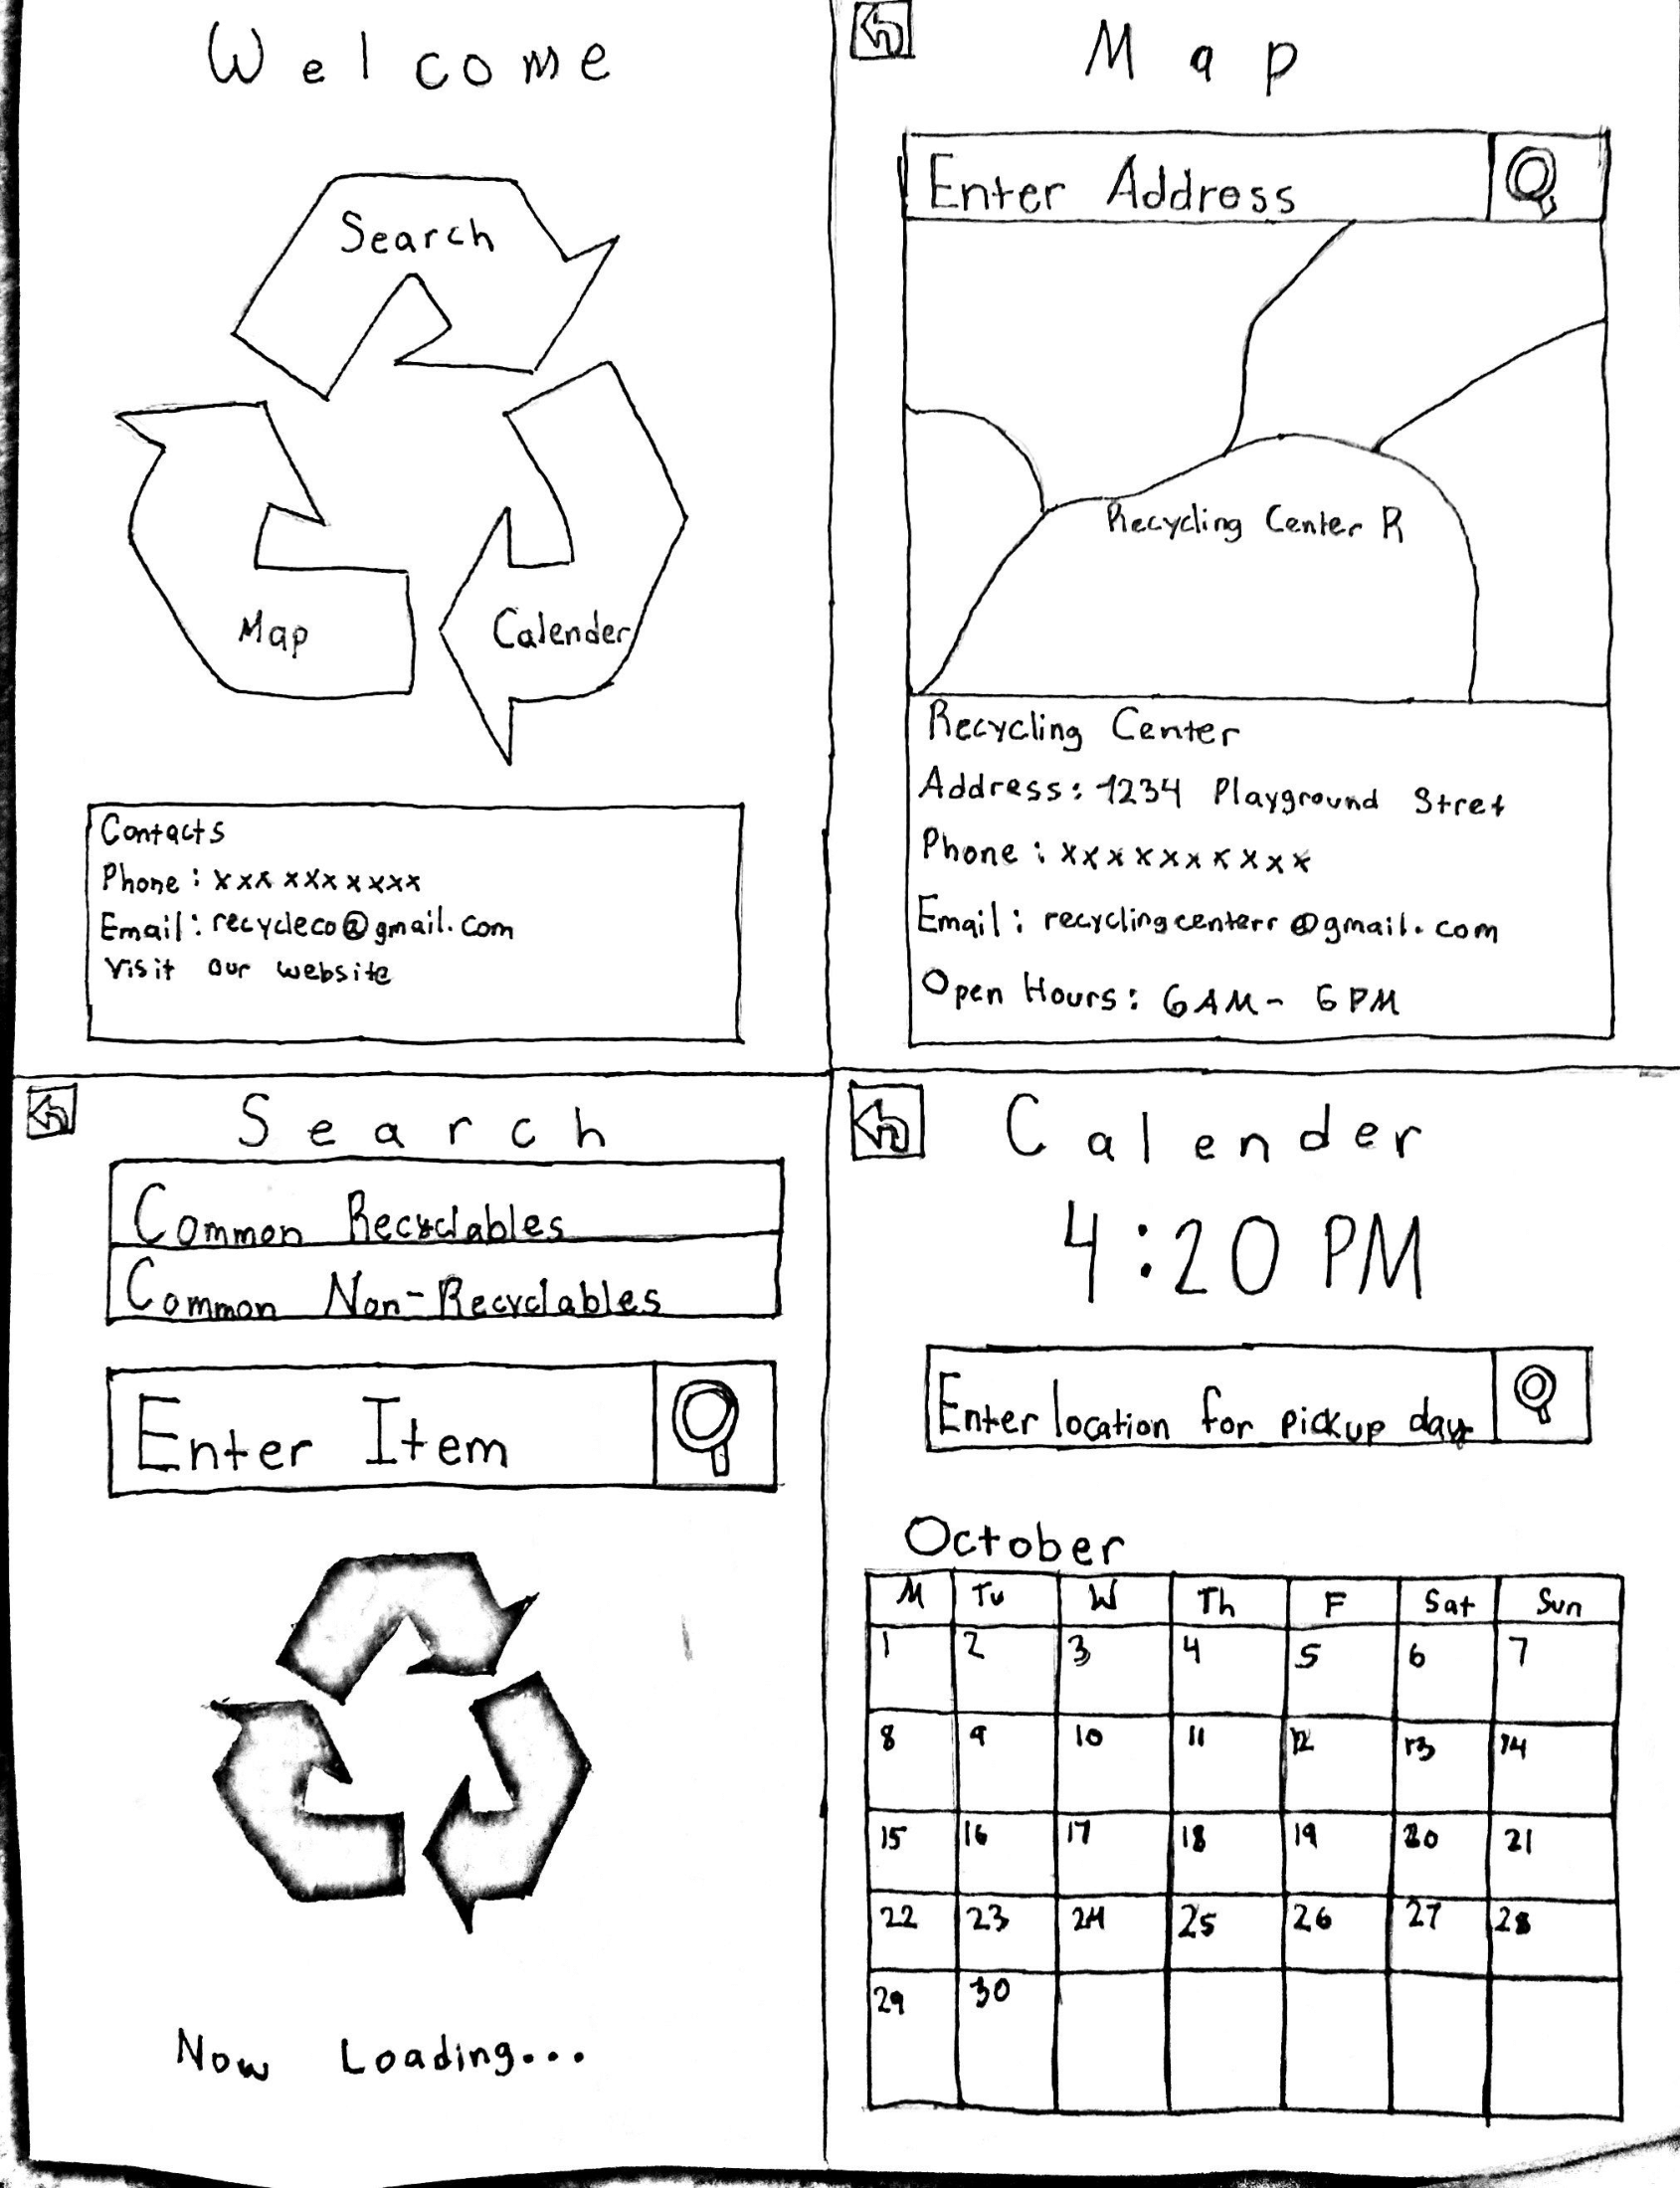 Welcome
Search
Map
Calender
Contacts
Phone: xxx xxxxxxx
Email: recycleco@gmail.com
Visit our website
Map
Enter Address
Recycling Center R
Recycling Center
Address: 1234 Playground Stret
Phone: xxxxxxxxxx
Email: recyclingcenterr@gmail.com
Open Hours: 6AM - 6PM
Search
Common Recyclables
Common Non-Recyclables
Enter Item
Now Loading...
Calender
4:20 PM
Enter location for pickup day
October
M Tu W Th F Sat Sun
1 2 3 4 5 6 7
8 9 10 11 12 13 14
15 16 17 18 19 20 21
22 23 24 25 26 27 28
29 30